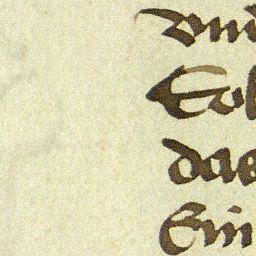 vnd
Sol
das
Ein